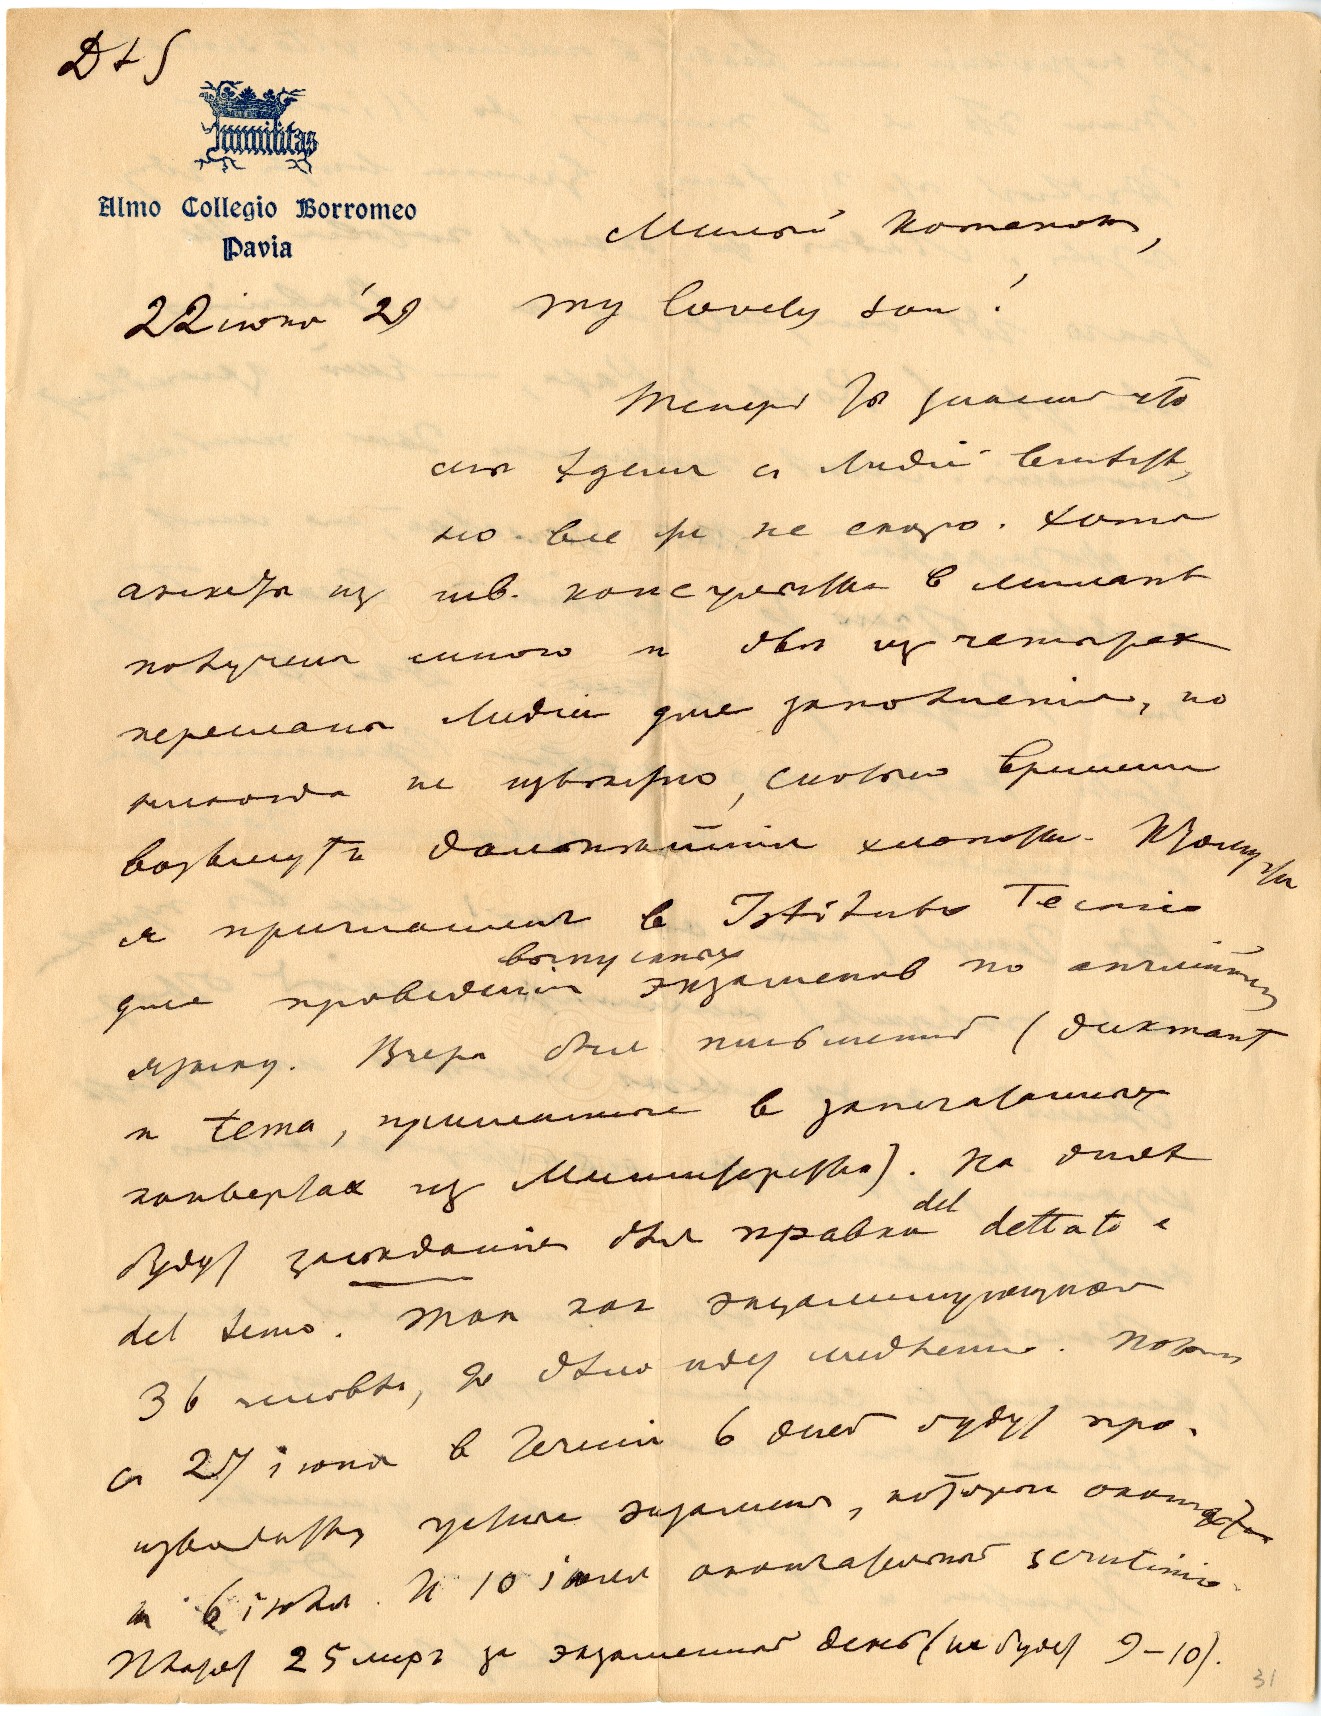 D + S
Humilitas
Almo Collegio Borromeo
Pavia
22 июня '29
Милый котенок,
my lovely son!
Теперь то знаем что
мы едем с Лидией вместе,
но все же не скоро. Хотя
анкеты из шв. консульства в Милане
получены мною и две из четырех
пересланы Лидии для заполнения, но
никогда не известно, сколько времени
возьмут дальнейшие хлопоты. К тому же
я приглашен в Istituto Tecnico
для проведения выпускных экзаменов по английскому
языку. Вчера был письменный (диктант
и tema, присланные в запечатанных
конвертах из Министерства). На днях
будут заседания для правки del dettato e
del tema. Так как экзаменующихся
36 человек, то дело идет медленно. Потом
с 27 июня в течении 6 дней будут про-
изводиться устные экзамены, которые окончатся
6 июля. И 10 июля окончательный scrutinio.
Платят 25 лир за экзаменный день (их будет 9–10).
31